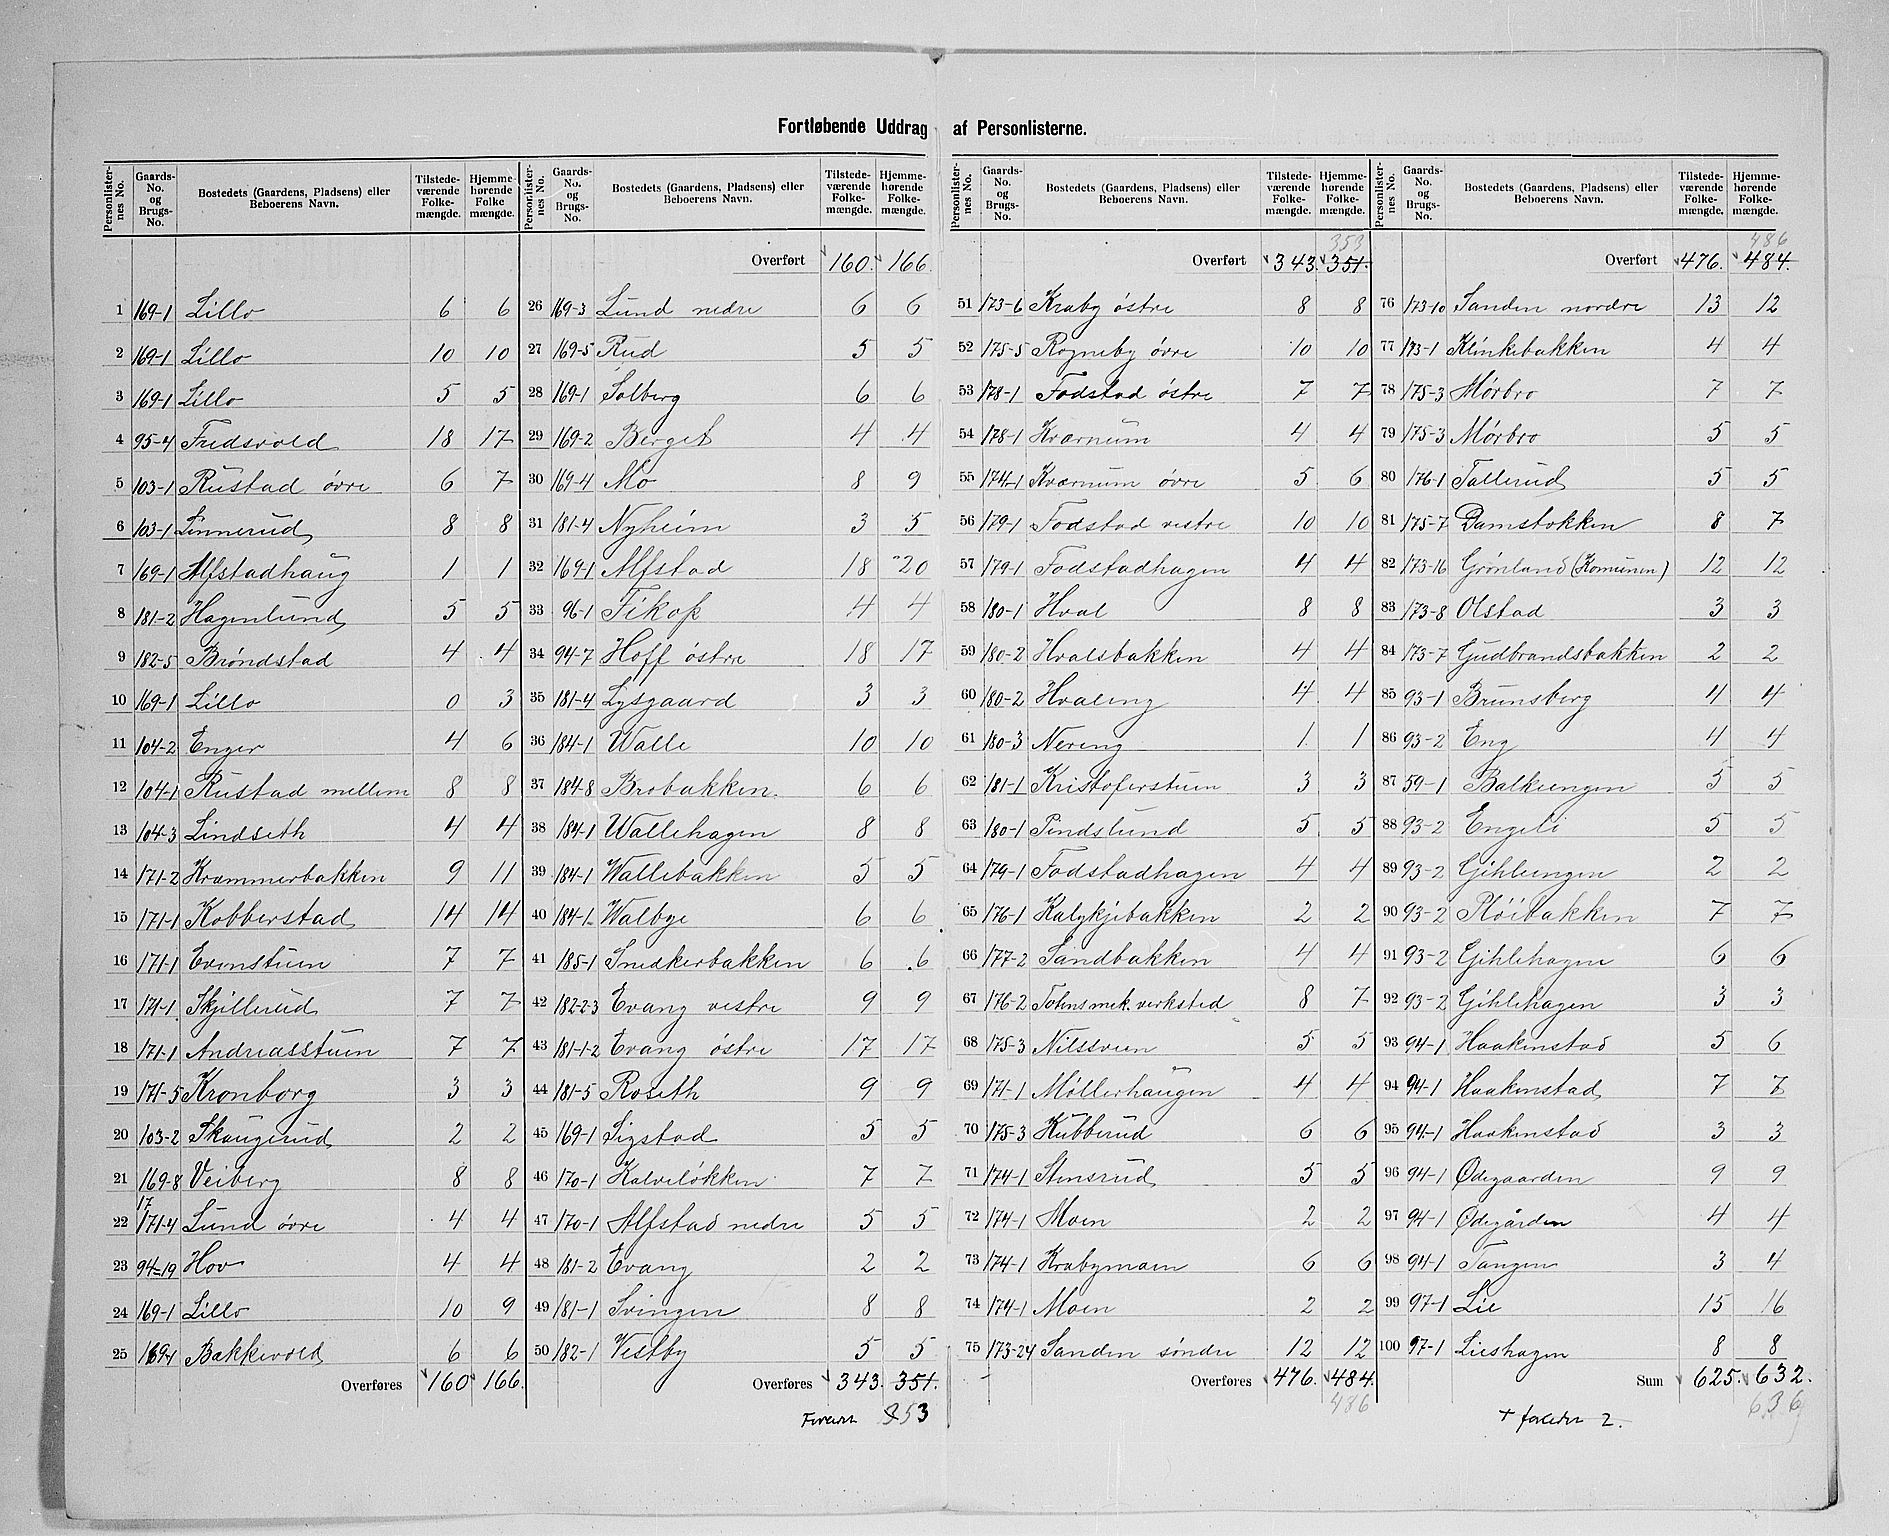 Fortløbende Uddrag af Personlisterne.
Personlister-nes No. | Gaards-No. og Brugs-No. | Bostedets (Gaardens, Pladsens) eller Beboerens Navn. | Tilstede-værende Folke-mængde. | Hjemme-hørende Folke mængde.
1 169-1 Lillo 6 6
2 169-1 Lillo 10 10
3 169-1 Lillo 5 5
4 95-4 Fredsvold 18 17
5 103-1 Rustad øvre 6 7
6 103-1 Linnerud 8 8
7 169-1 Alfstadhaug 1 1
8 181-2 Hagenlund 5 5
9 182-5 Brøndstad 4 4
10 169-1 Lillo 0 3
11 104-2 Enger 4 6
12 104-1 Rustad mellem 8 8
13 104-3 Lindseth 4 4
14 171-2 Kræmmerbakken 9 11
15 171-1 Kobberstad 14 14
16 171-1 Evenstuen 7 7
17 171-1 Skjillerud 7 7
18 171-1 Andreasstuen 7 7
19 171-5 Kronborg 3 3
20 103-2 Skaugerud 2 2
21 169-8 Veiberg 8 8
17
22 171-4 Lund øvre 4 4
23 94-19 Hov 4 4
24 169-1 Lillo 10 9
25 169-1 Bakkevold 6 6
Overføres 160 166.
Personlister-nes No. | Gaards-No. og Brugs-No. | Bostedets (Gaardens, Pladsens) eller Beboerens Navn. | Tilstede-værende Folke-mængde. | Hjemme-hørende Folke-mængde.
Overført 160. 166.
26 169-3 Lund nedre 6 6
27 169-5 Rud 5 5
28 169-1 Solberg 6 6
29 169-2 Berget 4 4
30 169-4 Mo 8 9
31 181-4 Nyheim 3 5
32 169-1 Alfstad 18 20
33 96-1 Fikop 4 4
34 94-7 Hoff østre 18 17
35 181-4 Lysgaard 3 3
36 184-1 Walle 10 10
37 184-8 Brobakken. 6 6
38 184-1 Wallehagen 8 8
39 184-1 Wallebakken 5 5
40 184-1 Walbye 6 6
41 185-1 Snedkerbakken 6 6
42 182-2-3 Evang vestre 9 9
43 181-1-2 Evang østre 17 17
44 181-5 Roseth 9 9
45 169-1 Sigstad 5 5
46 170-1 Kalveløkken 7 7
47 170-1 Alfstad nedre 5 5
48 181-2 Evang 2 2
49 181-1 Svingen 8 8
50 182-1 Vestby 5 5
Overføres 343. 351.
353
Personlister-nes No. | Gaards-No. og Brugs-No. | Bostedets (Gaardens, Pladsens) eller Beboerens Navn. | Tilstede-værende Folke-mængde. | Hjemme-hørende Folke-mængde.
353
Overført 343. 351.
51 173-6 Kraby østre 8 8
52 175-5 Rogneby øvre 10 10
53 178-1 Fodstad østre 7 7
54 178-1 Kværnum 4 4
55 174-1 Kværnum øvre 5 6
56 179-1 Fodstad vestre 10 10
57 179-1 Fodstadhagen 4 4
58 180-1 Hval 8 8
59 180-2 Hvalsbakken 4 4
60 180-2 Hvaleng 4 4
61 180-3 Nereng 1 1
62 181-1 Kristoferstuen 3 3
63 180-1 Pindslund 5 5
64 179-1 Fodstadhagen 4 4
65 176-1 Kalykjebakken 2 2
66 177-2 Sandbakken 4 4
67 176-2 Tohns mek. verksted 8 7
68 175-3 Nilssveen 5 5
69 171-1 Møllerhaugen 4 4
70 175-3 Kubberud 6 6
71 174-1 Stensrud 5 5
72 174-1 Moen 2 2
73 174-1 Krabymoen 6 6
74 174-1 Moen 2 2
75 173-24 Sanden søndre 12 12
Overføres 476. 484.
486
Personlister-nes No. | Gaards-No. og Brugs-No. | Bostedets (Gaardens, Pladsens) eller Beboerens Navn. | Tilstede-værende Folke-mængde. | Hjemme-hørende Folke-mængde.
486
Overført 476. 484.
76 173-10 Sanden nordre 13 12
77 173-1 Klinkebakken 4 4
78 175-3 Mørbro 7 7
79 175-3 Mørbro 5 5
80 176-1 Tollerud 5 5
81 175-7 Damstokken 8 7
82 173-16 Grønland (Komunen) 12 12
83 173-8 Olstad 3 3
84 173-7 Gudbrandsbakken 2 2
85 93-1 Brunsberg 4 4
86 93-2 Eng 4 4
87 59-1 Balkeengen 5 5
88 93-2 Engeli 5 5
89 93-2 Gihleengen 2 2
90 93-2 Pløibakken 7 7
91 93-2 Gihlehagen 6 6
92 93-2 Gihlehagen 3 3
93 94-1 Haakenstad 5 6
94 94-1 Haakenstad 7 7
95 94-1 Haakenstad 3 3
96 94-1 Ødegaarden 9 9
97 94-1 Ødegården 4 4
98 94-1 Tangen 3 4
99 97-1 Lie 15 16
100 97-1 Lieshagen 8 8
Sum 625. 632.
636
+ 2.